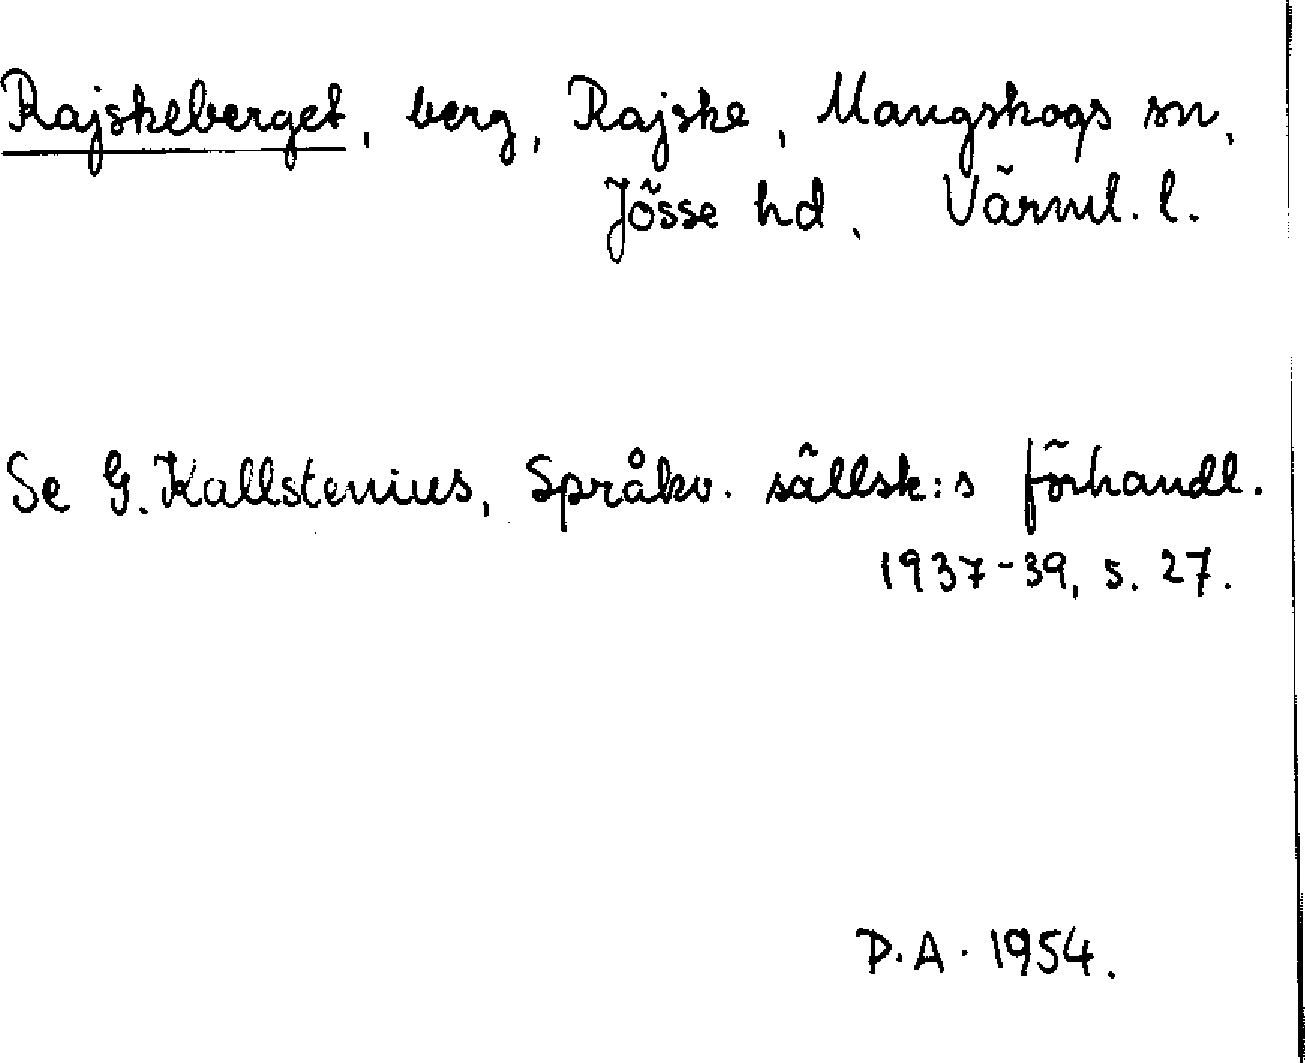 Rajskeberget, berg, Rajske, Mangskogs sn,
Jösse hd, Värml. l.
Se G. Kallstenius, Språkv. sällsk:s förhandl.
1937-39, s. 27.
P.A. 1954.